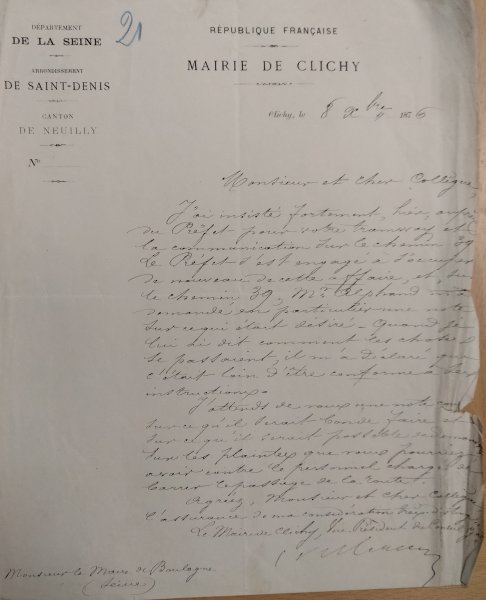 DÉPARTEMENT
DE LA SEINE
ARRONDISSEMENT
DE SAINT-DENIS
CANTON
DE NEUILLY
N°
21
RÉPUBLIQUE FRANÇAISE
MAIRIE DE CLICHY
Clichy, le 8 Xbre 1876
Monsieur et cher Collègue,
J'ai insisté fortement, hier, auprès
du Préfet pour votre tramway et
la communication sur le chemin 39
Le Préfet s'est engagé à s'occuper
de nouveau de cette affaire, et, sur
le chemin 39, Mr Alphand m'a
demandé en particulier une note
sur ce qui était désiré - Quand je
lui ai dit comment les choses
se passaient, il m'a déclaré que
c'était loin d'être conforme à ses
instructions.
J'attends de vous une note
sur ce qu'il serait bon de faire et
sur ce qu'il serait possible
sur les plaintes que vous pourriez
avoir contre le personnel chargé de
barrer le passage de la route.
Agréez, Monsieur et cher Collègue
l'assurance de ma considération
Le Maire de Clichy, Vice Président du Conseil
Monsieur le Maire de Boulogne
(Seine)